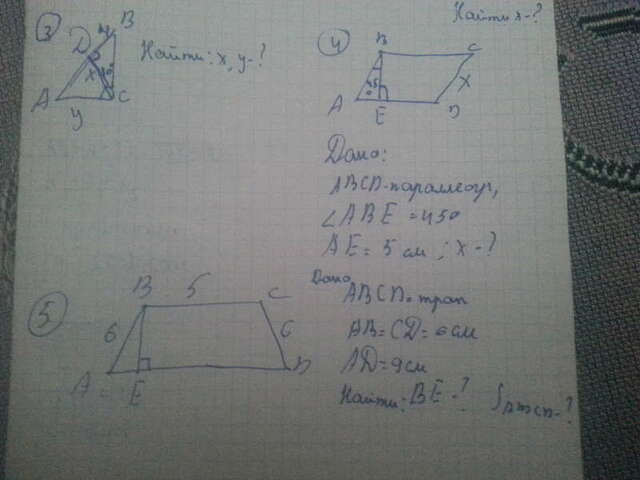 Найти x-?
③
B
y
D
Найти: x, y-?
x
A
C
y
④
B
C
45°
x
A
E
D
Дано:
ABCD-параллеогр,
∠ABE = 45°
AE = 5 см ; x-?
⑤
B
5
C
6
6
A
E
D
Дано
ABCD-трап
AB=CD=6см
AD=9см
Найти: BE-?